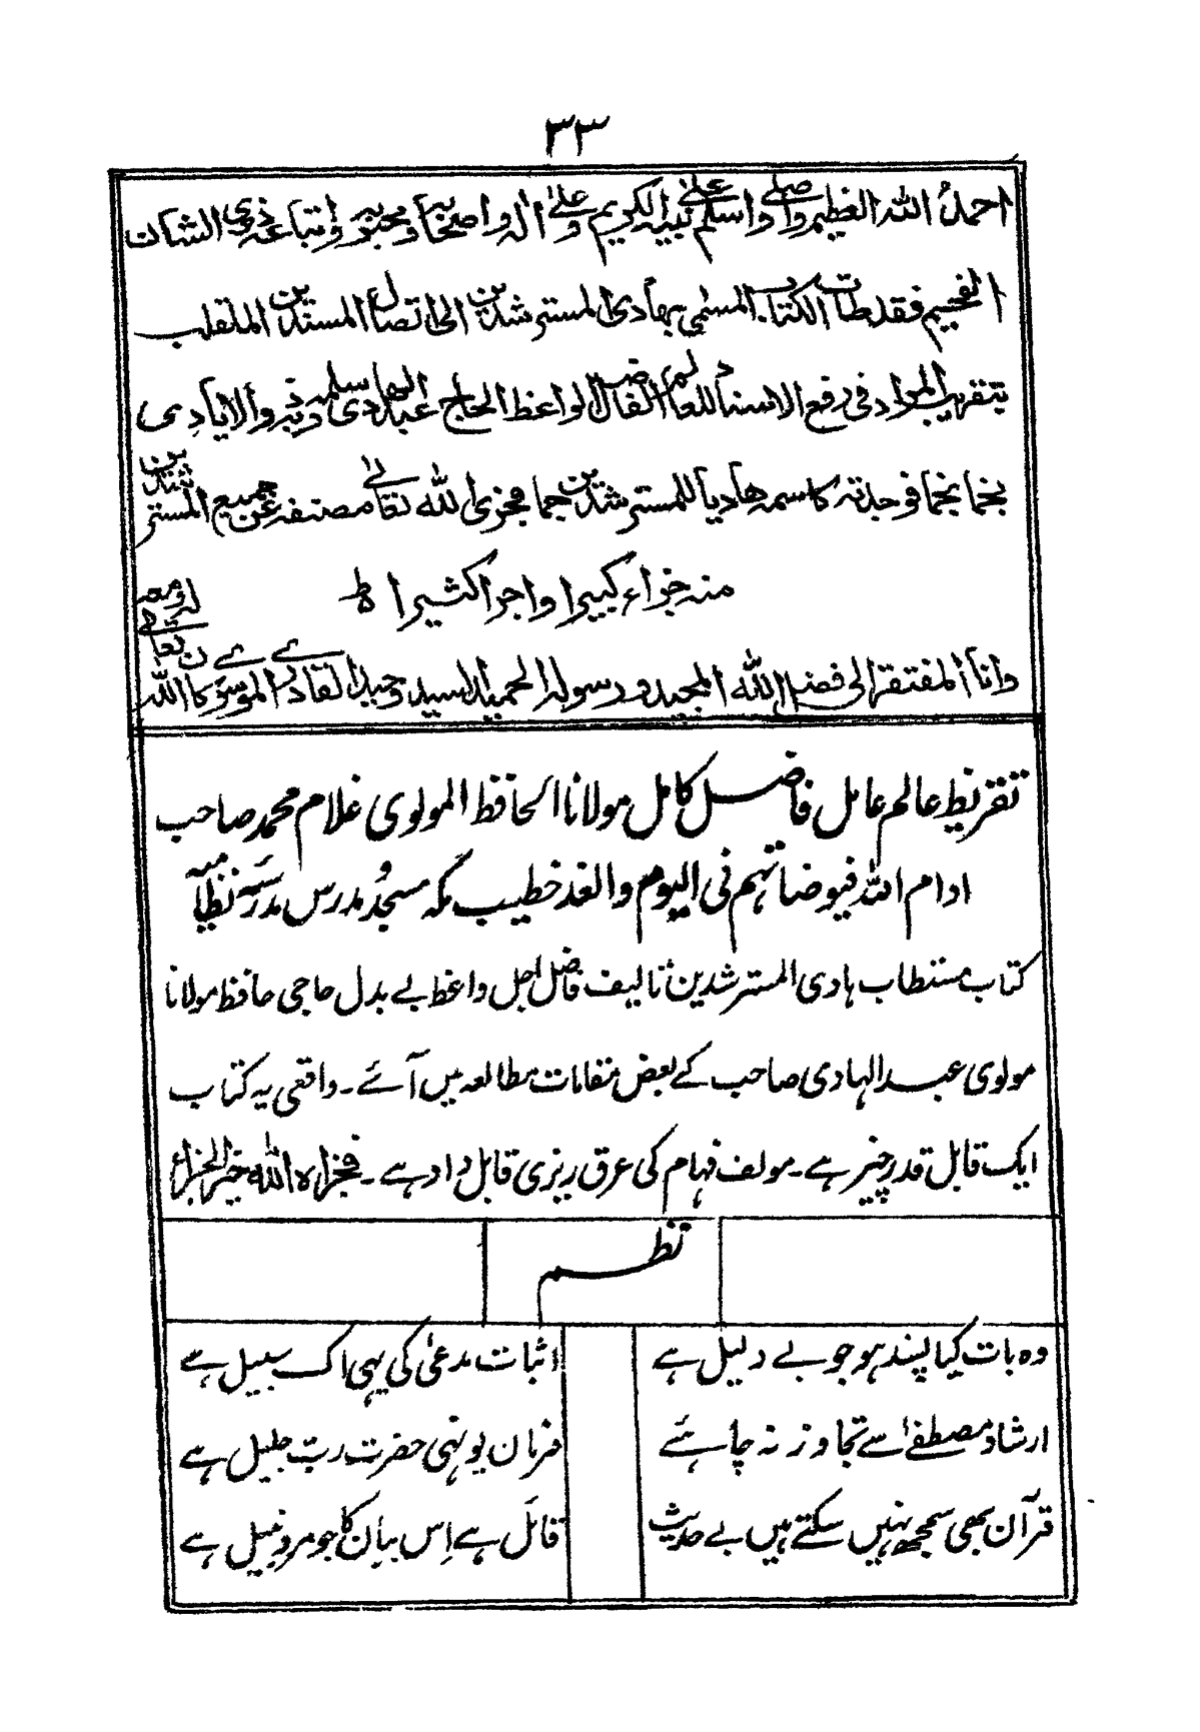 ۳۳
احمدُ اللہ العظیم واصلی واسلم علیٰ نبیہ الکریم وعلیٰ اٰلہ واصحابہ ومحبیہ واتباعہ ذوی الشان
الفخیم فقد طالعت الکتاب المسمی بہادی المسترشدین الی اتصال المسندین الملقلب
بتقریب المواد فی رفع الاسناد للعالم الفاضل الواعظ الحاج عبد الہادی سلمہ ربہ ذو الایادی
نجما نجما فوجدتہ کاسمہ ھادیا للمسترشدین جما فجزی اللہ تعالیٰ مصنفہ عن جمیع المسترشدین
منہ جزاء کبیرا واجرا کثیرا
وانا المفتقر الی فضل اللہ المجید ورسولہ الحمید السید وحید القادری الموسوی کان اللہ تعالیٰ لہ ومعہ
تقریظ عالم عامل فاضل کامل مولانا الحافظ المولوی غلام محمد صاحب
ادام اللہ فیوضاتہم فی الیوم والغد خطیب مکہ مسجد و مدرس مدرسہ نظامیہ
کتاب مستطاب ہادی المسترشدین تالیف فاضل اجل واعظ بے بدل حاجی حافظ مولانا
مولوی عبد الہادی صاحب کے بعض مقامات مطالعہ میں آئے۔ واقعی یہ کتاب
ایک قابل قدر چیز ہے۔ مولف فہام کی عرق ریزی قابل داد ہے۔ فجزاہ اللہ خیر الجزاء
نظم
وہ بات کیا پسند ہو جو بے دلیل ہے اثبات مدعیٰ کی یہی اک سبیل ہے
ارشاد مصطفےٰ سے تجاوز نہ چاہئے فرمان یونہی حضرت ربّ جلیل ہے
قرآن بھی سمجھ نہیں سکتے ہیں بے حدیث قائل ہے اِس بیان کا جو مرد نبیل ہے